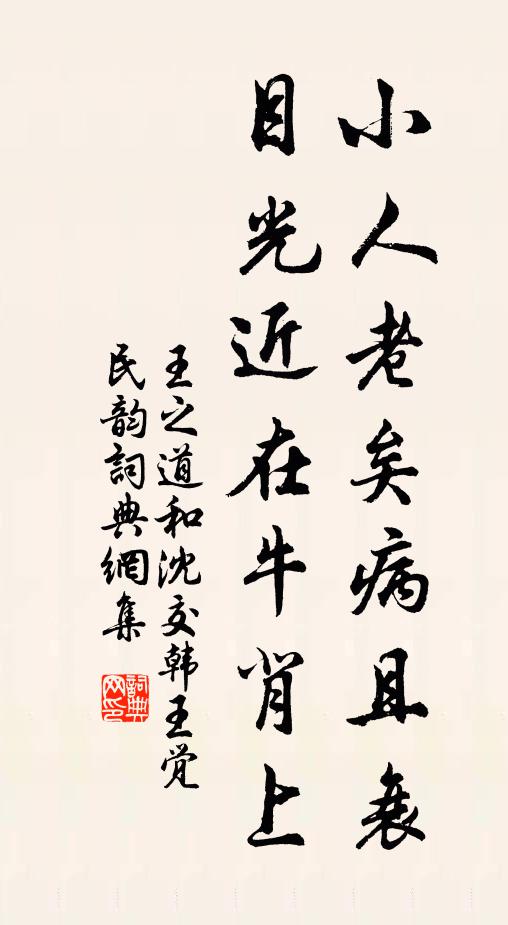 小人老矣病且衰
目光近在牛背上
王之道和沈交韩王觉
民韵詞典網集
詞典
网印